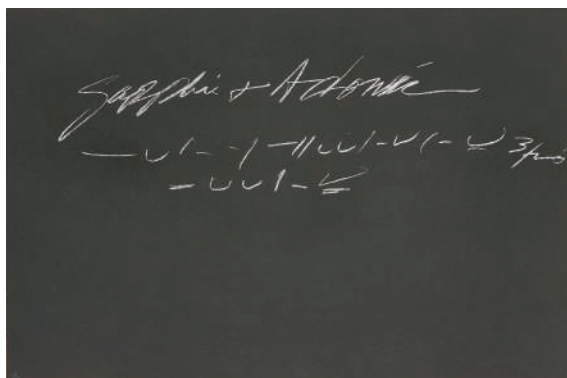 Sapphic + Adonic
— ∪ | – – | – || ∪ ∪ | – ∪ | – ∪
– ∪ ∪ | – ∪